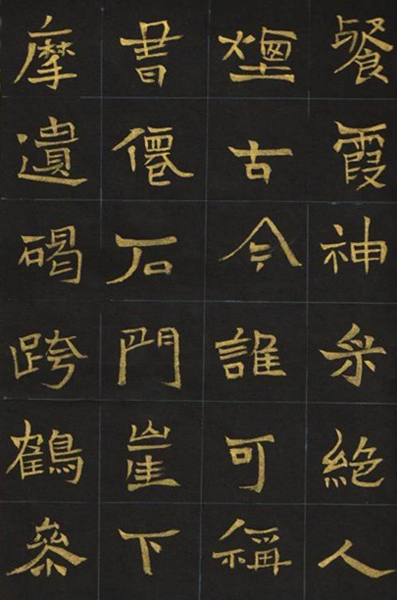 餐霞神采絕人
煙古今誰可稱
書僊石門崖下
摩遺碣跨鶴參